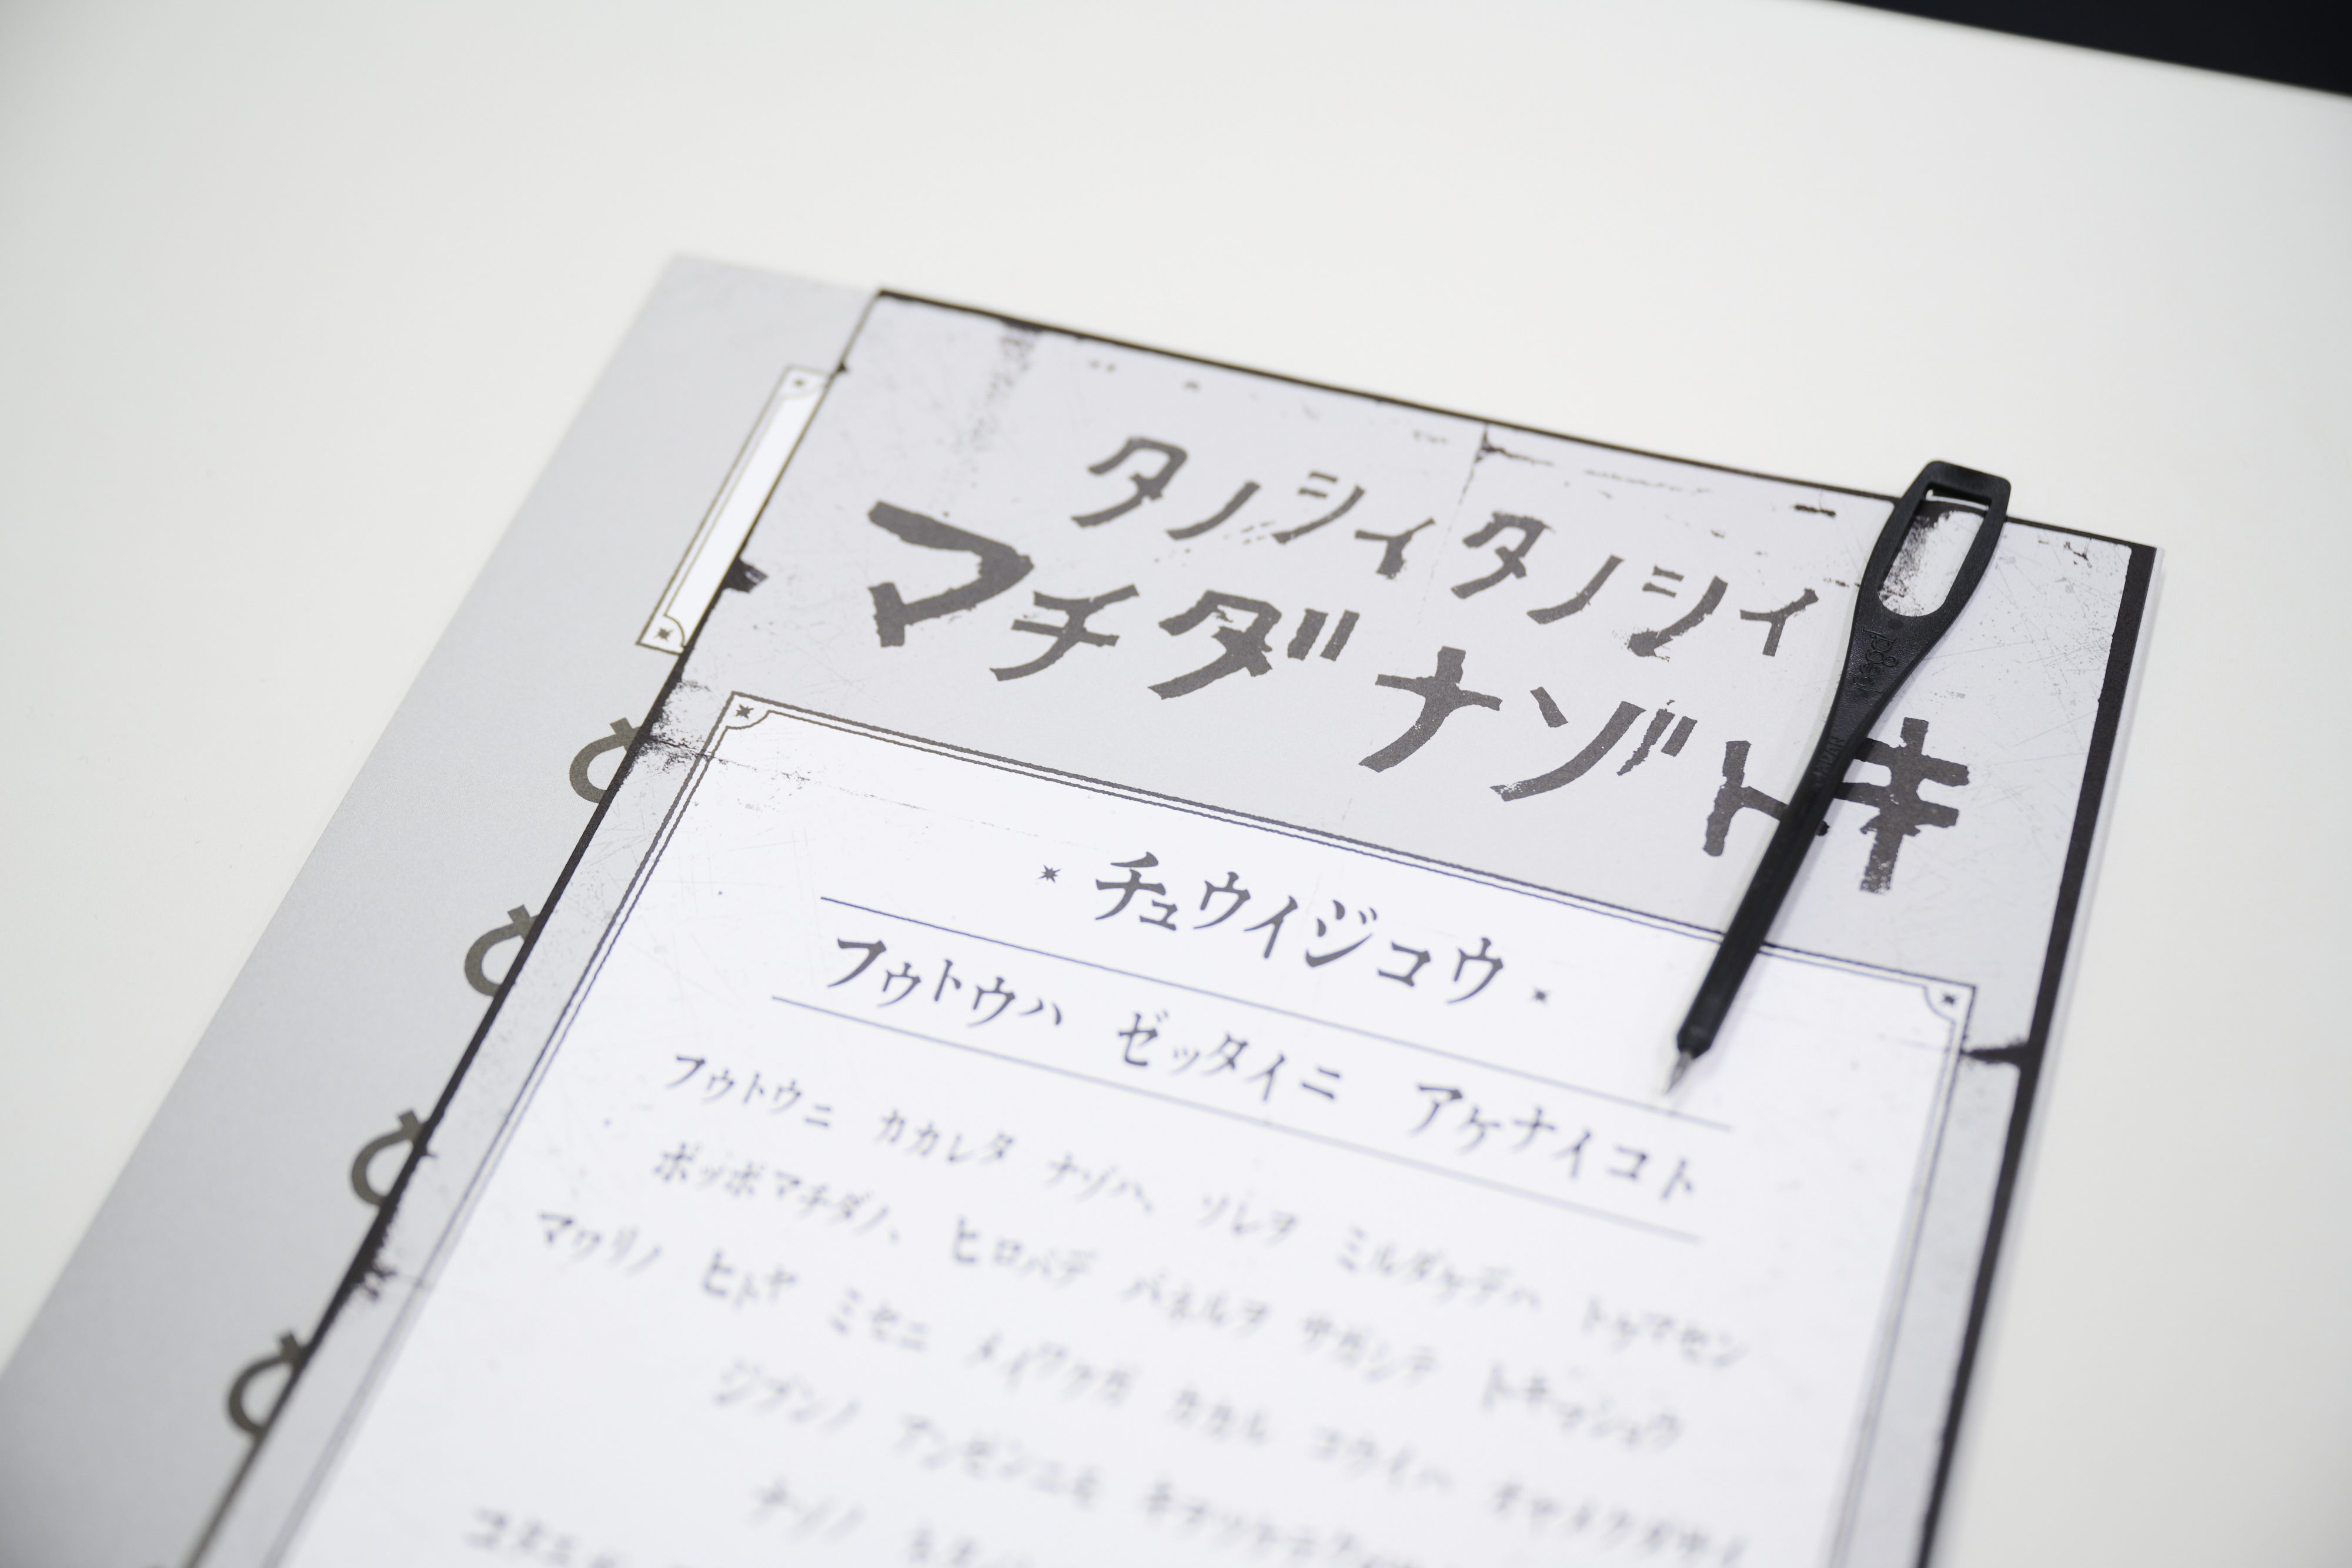 タノシイタノシイ
マチダナゾトキ
チュウイジコウ
フウトウハ ゼッタイニ アケナイコト
フウトウニ カカレタ ナゾハ、 ソレヲ ミルダケデハ トケマセン
ポッポマチダノ、 ヒロバデ パネルヲ サガシテ トキマショウ
マワリノ ヒトヤ ミセニ メイワクガ カカル コウイハ オヤメクダサイ
ジブンノ アンゼンニモ
ナゾノ